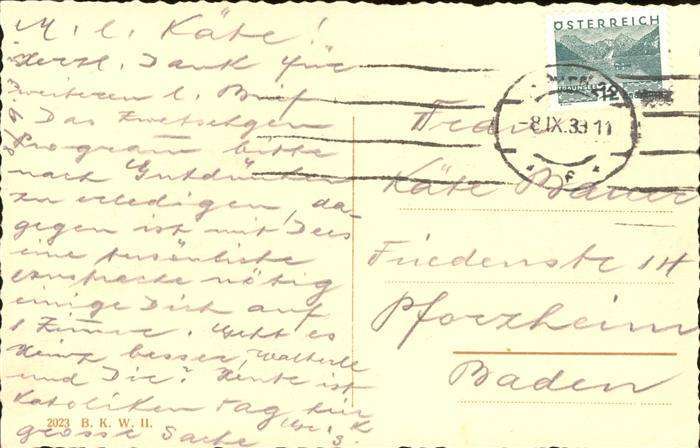 M. l. Käte!
Herzl. Dank für
weiteren l. Brief
Das Zwetschgen
Programm bitte
nach Gutdünken
zu erledigen, da-
gegen ist mit Dees
eine persönliche
Aussprache nötig
einige Dich auf
1 Zimmer. Geht es
Heinz besser, Walterle
und Dir? Heute ist
Katholiken Tag hier
grosse Sache
2023 B. K. W. II.
ÖSTERREICH
TRAUNSEE
12
WIEN
-8.IX.33 11
Frau
Käte Bauer
Friedenstr 14
Pforzheim
Baden